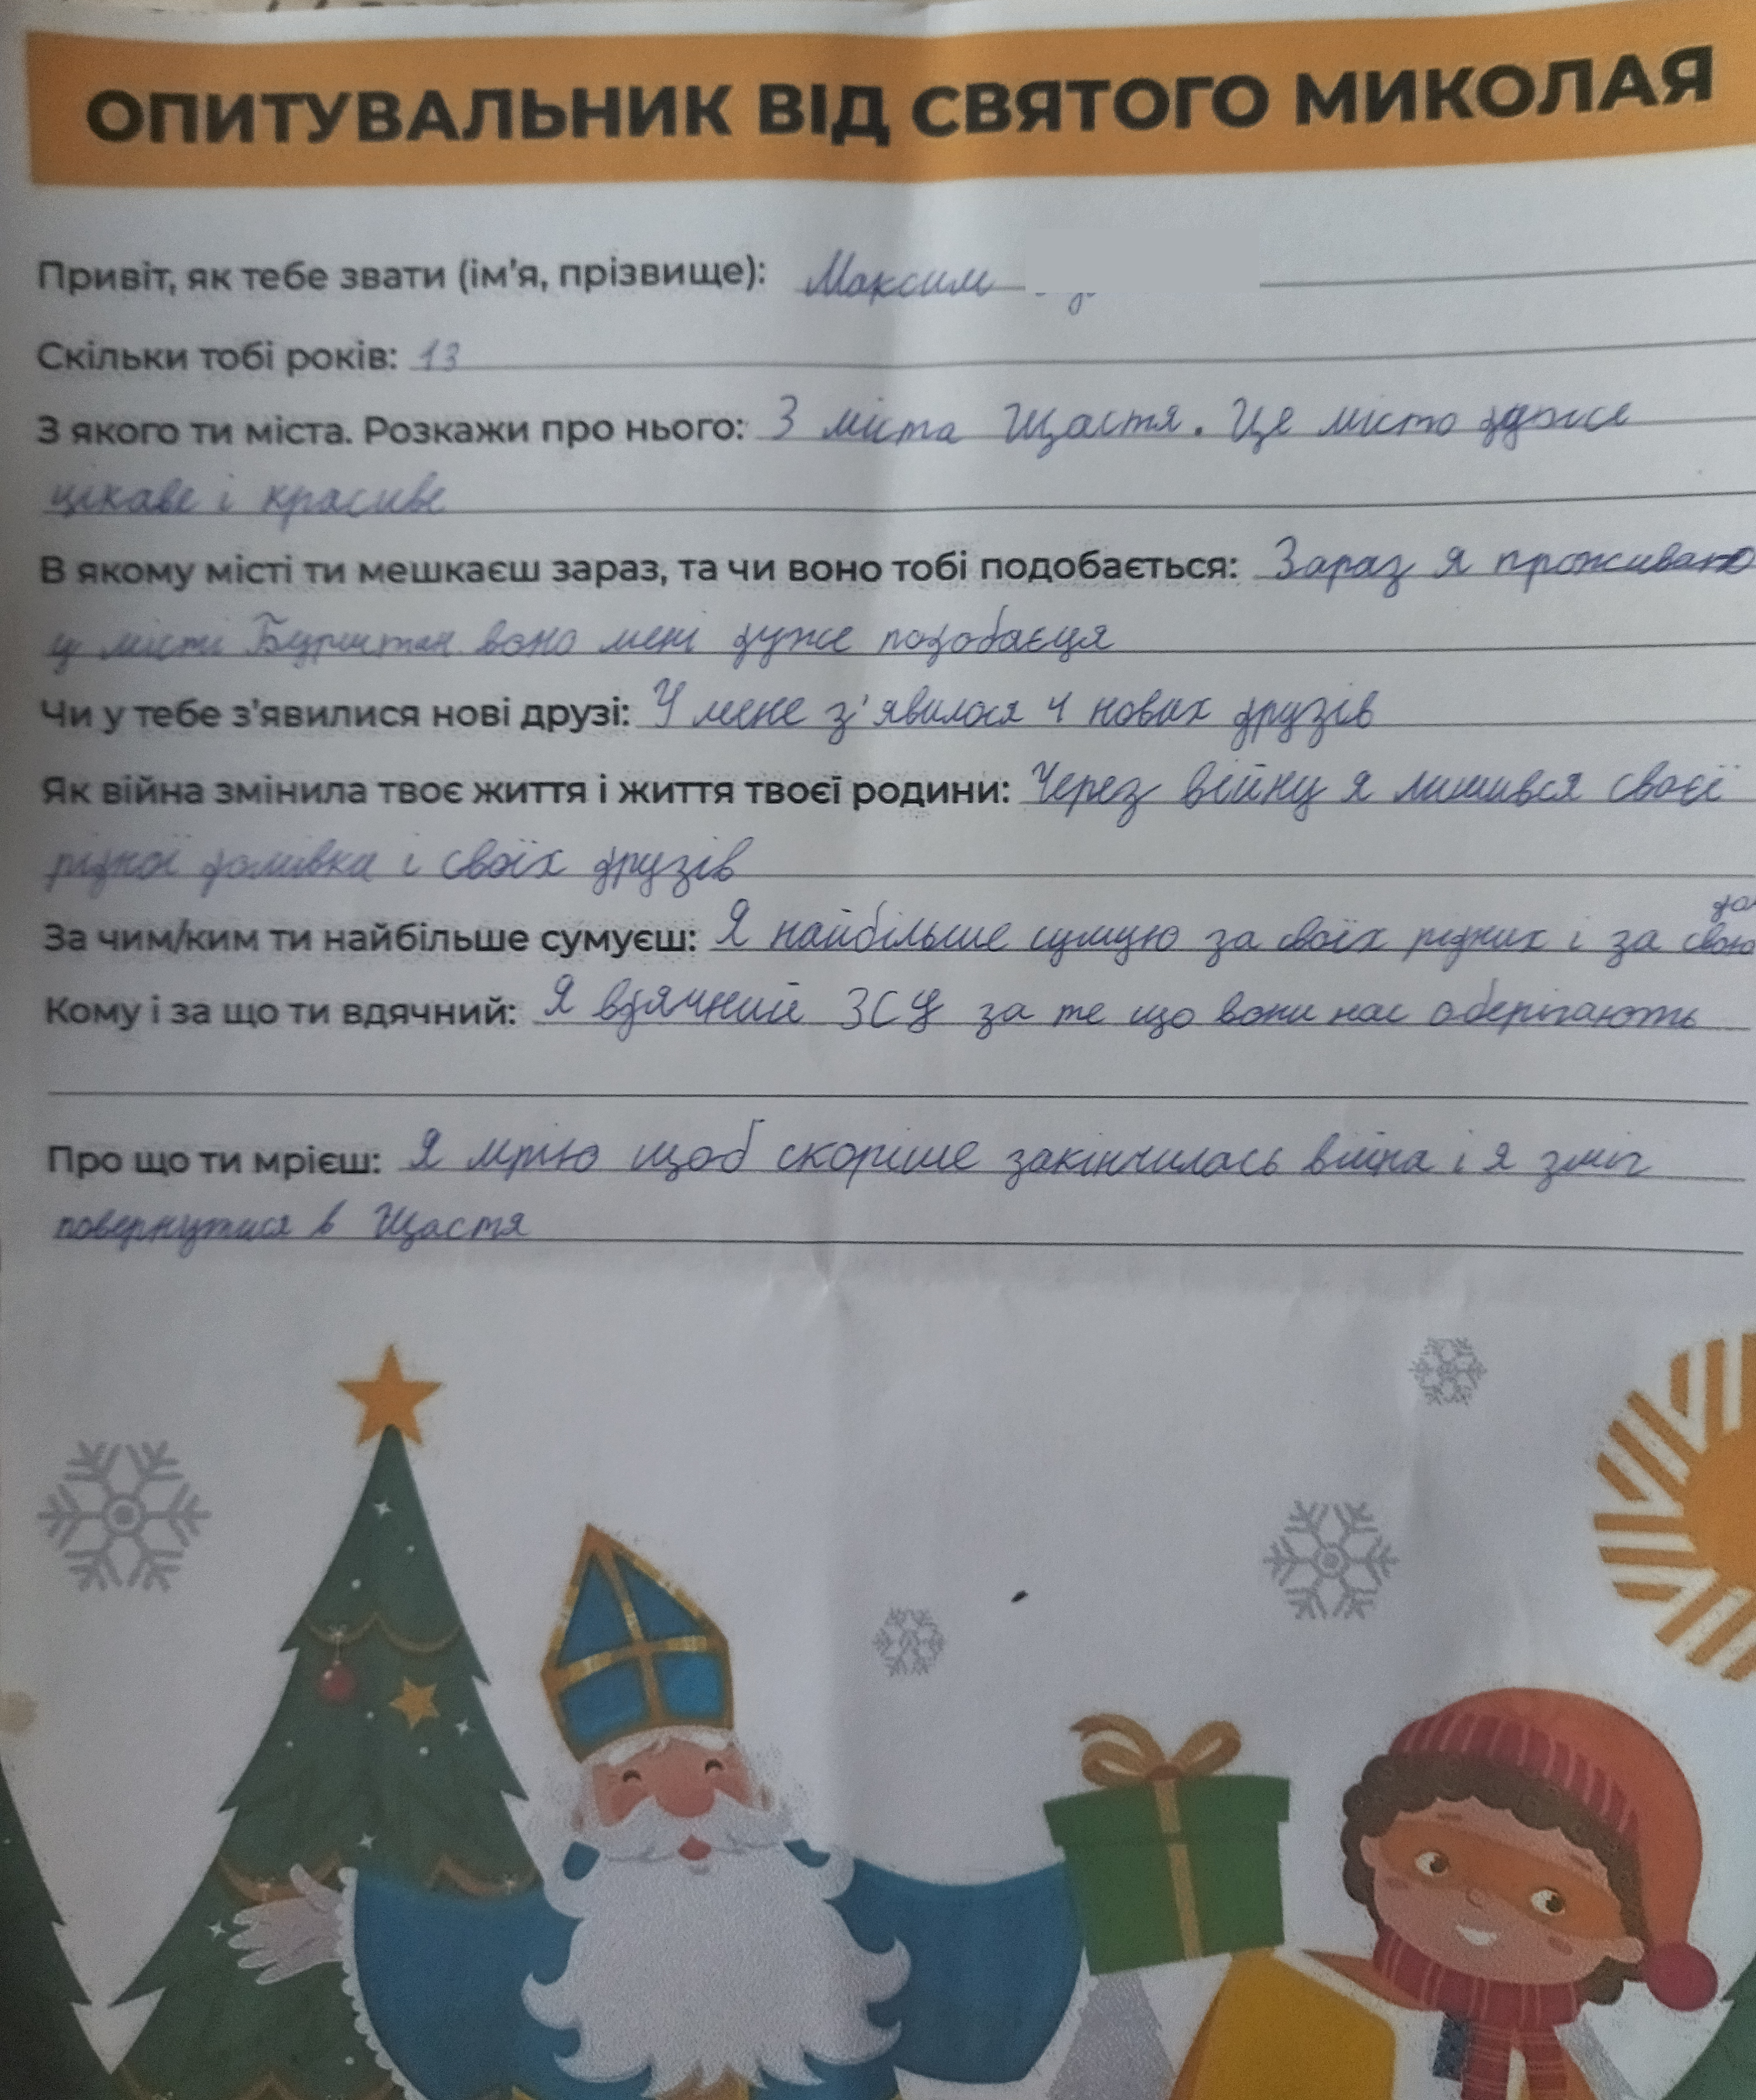 ОПИТУВАЛЬНИК ВІД СВЯТОГО МИКОЛАЯ
Привіт, як тебе звати (ім'я, прізвище): Максим
Скільки тобі років: 13
З якого ти міста. Розкажи про нього: З міста Щастя. Це місто дуже
цікаве і красиве
В якому місті ти мешкаєш зараз, та чи воно тобі подобається: Зараз я проживаю
у місті Бурштин воно мені дуже подобаєця
Чи у тебе з'явилися нові друзі: У мене з'явилося 4 нових друзів
Як війна змінила твоє життя і життя твоєї родини: Через війну я лишився своєї
рідної домівки і своїх друзів
За чим/ким ти найбільше сумуєш: Я найбільше сумую за своїх рідних і за свою
Кому і за що ти вдячний: Я вдячний ЗСУ за те що вони нас оберігають
Про що ти мрієш: Я мрію щоб скоріше закінчилась війна і я зміг
повернутися в Щастя